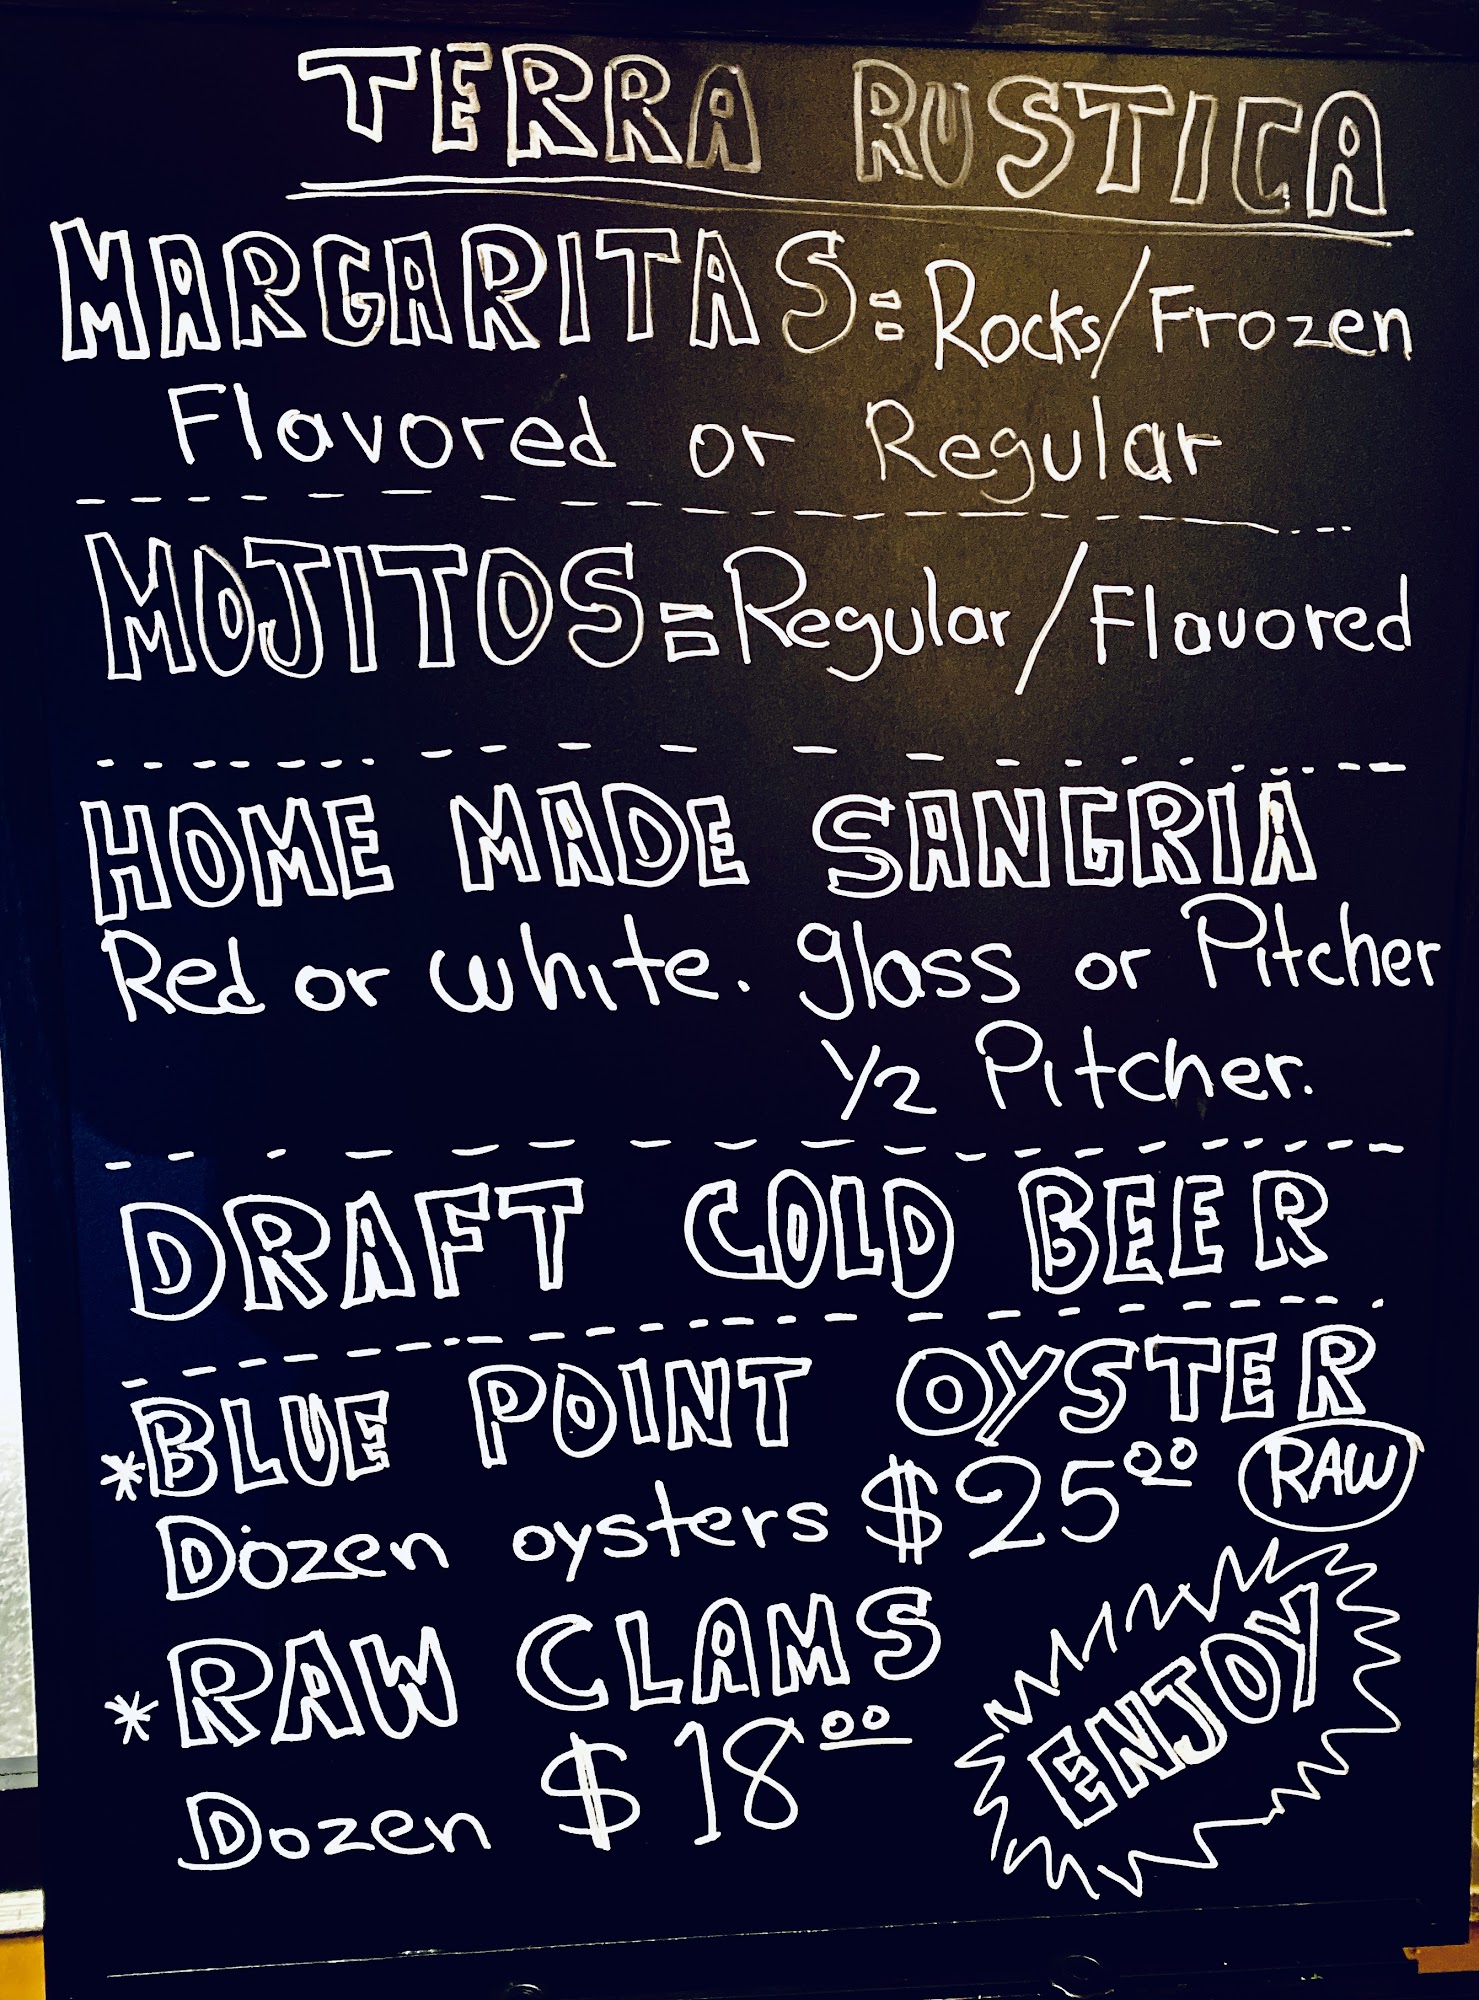 TERRA RUSTICA
MARGARITAS = Rocks/Frozen
Flavored or Regular
MOJITOS = Regular/Flavored
HOME MADE SANGRIA
Red or white. glass or Pitcher
1/2 Pitcher.
DRAFT COLD BEER
*BLUE POINT OYSTER
Dozen oysters $25.00 RAW
*RAW CLAMS
Dozen $18.00
ENJOY